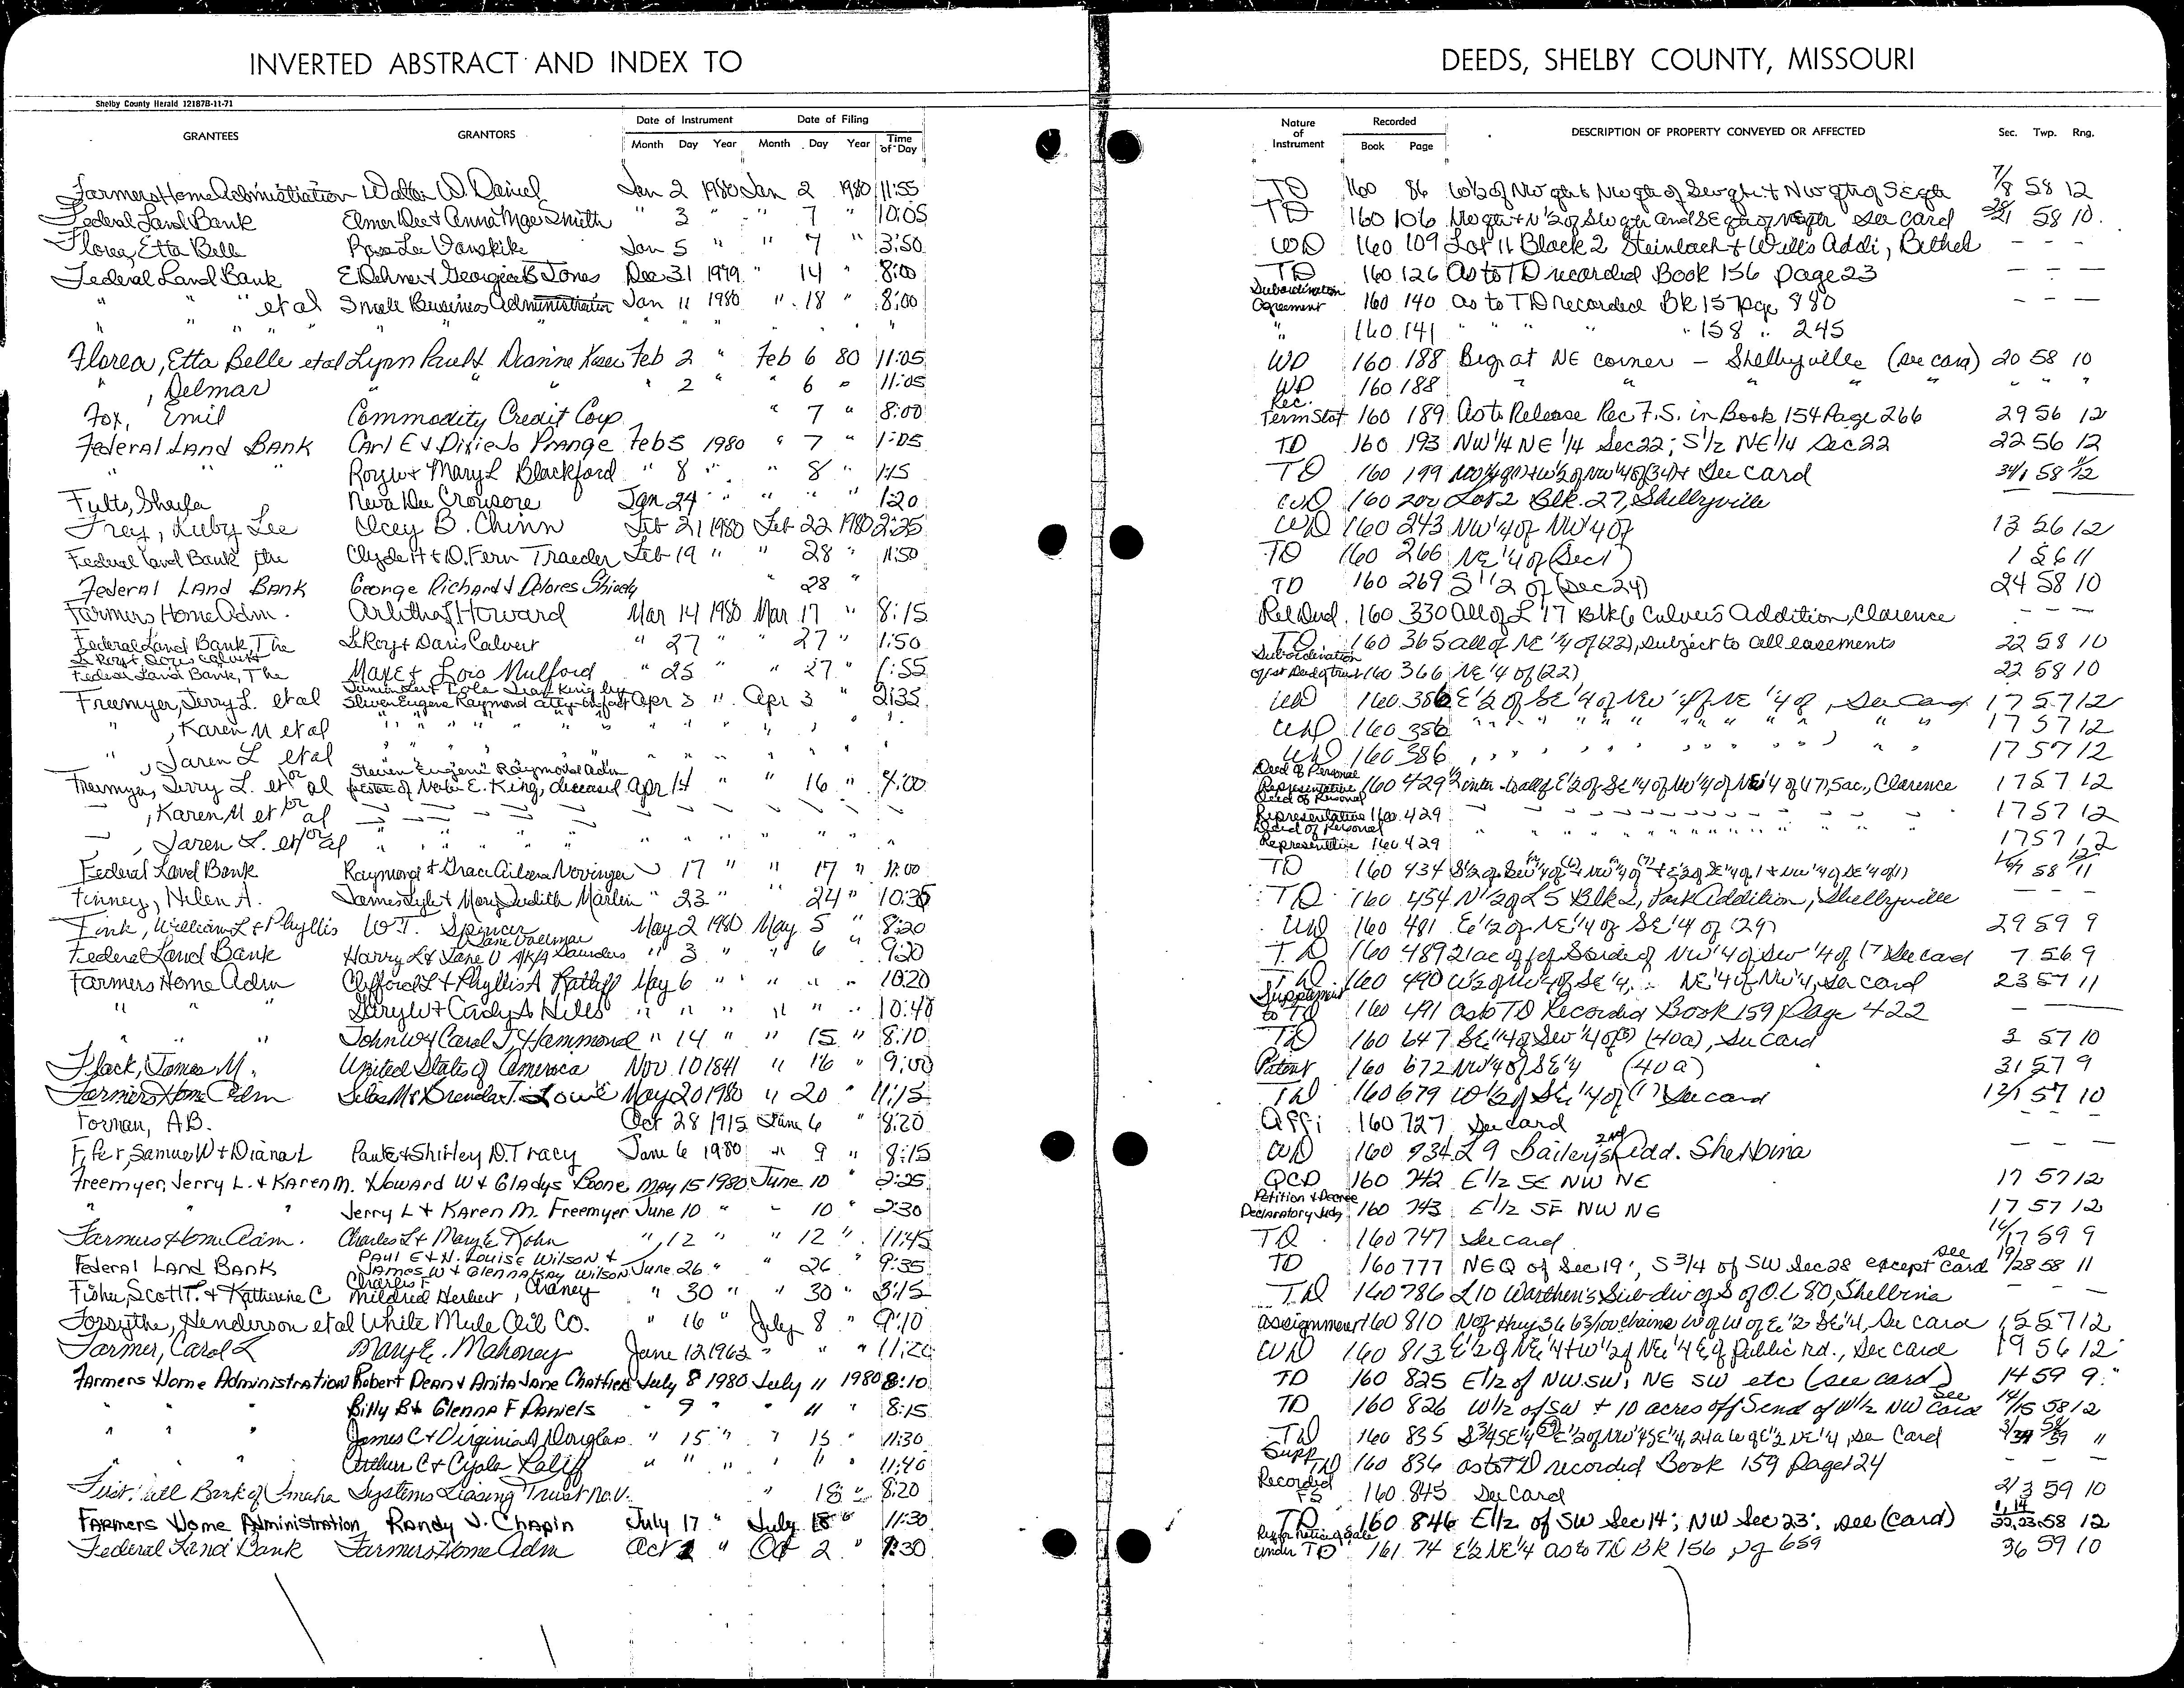 INVERTED ABSTRACT AND INDEX TO
DEEDS, SHELBY COUNTY, MISSOURI
Shelby County Herald 12187B-11-71
GRANTEES GRANTORS Date of Instrument Date of Filing Nature of Instrument Recorded DESCRIPTION OF PROPERTY CONVEYED OR AFFECTED Sec. Twp. Rng.
Month Day Year Month Day Year Time of Day Book Page
Farmers Home Administration Walter W. Daniel Jan 2 1980 Jan 2 1980 11:55 TD 160 86 W½ of NW qtr & NW qtr of SW qtr & NW qtr of SE qtr 7/8 58 12
Federal Land Bank Elmer Dee & Anna Mae Smith " 3 " " 7 " 10:05 TD 160 106 See card 58 10
Florea, Etta Belle Rosa Lee Vanskike Jan 5 " " 7 " 3:50 WD 160 109 Lot 11 Block 2 Steinbach & Will's Addi, Bethel - - -
Federal Land Bank E. Dehner & Georgia B Jones Dec 31 1979 " 14 " 8:00 TD 160 126 As to TD recorded Book 156 page 23 - - -
" " et al Small Business Administration Jan 11 1980 " 18 " 8:00 Subordination Agreement 160 140 as to TD recorded Bk 157 pge 880 - - -
" " " " " " " " " " " 160 141 " " " " 158 " 245
Florea, Etta Belle et al Lynn Paul & Dianne Feb 2 " Feb 6 80 11:05 WD 160 188 Beg at NE corner - Shelbyville (see card) 20 58 10
" , Delmar " " " " 2 " " 6 " 11:05 WD 160 188 " " " " " " "
Fox, Emil Commodity Credit Corp. " 7 " 8:00 Rec. Term Stat 160 189 As to Release Rec F.S. in Book 154 Page 266 29 56 12
Federal Land Bank Carl E & Dixie Jo Prange Feb 5 1980 " 7 " 1:05 TD 160 193 NW 1/4 NE 1/4 Sec 22; S 1/2 NE 1/4 Sec 22 22 56 12
" " " Roy W & Mary L Blackford " 8 " " 8 " 1:15 TD 160 199 See card
Fults, Sheila Neva Dee Crousore Jan 24 " " " " 1:20 WD 160 200 Lot 2 Blk. 27, Shelbyville
Frey, Ruby Lee Olcey B. Chinn Feb 21 1980 Feb 22 1980 2:25 WD 160 243 NW ¼ of NW ¼ of 13 56 12
Federal Land Bank, the Clyde H & D. Fern Traeder Feb 19 " " 28 " 11:50 TD 160 266 NE ¼ of (Sec 1) 1 56 11
Federal Land Bank George Richard & Delores Shively " 28 " TD 160 269 S ½ of (Sec 24) 24 58 10
Farmers Home Adm. Arlitha J Howard Mar 14 1980 Mar 17 " 8:15 Rel Deed 160 330 All of L 17 Blk 6 Culver's Addition, Clarence - - -
Federal Land Bank, The LeRoy & Doris Calvert " 27 " " 27 " 1:50 TD 160 365 all of NE ¼ of (22), subject to all easements 22 58 10
LeRoy & Doris Calvert
Federal Land Bank, The Max E & Lois Mulford " 25 " " 27 " 1:55 Subordination of 1st Deed of Trust 160 366 NE ¼ of (22) 22 58 10
Freemyer, Jerry L. et al King by Steven Eugene Raymond atty-in-fact Apr 3 " Apr 3 " 2:35 WD 160 386 E ½ of SE ¼ of NW ¼ of NE ¼ of, See Card 17 57 12
" , Karen M et al " " " " " " " " WD 160 386 " " " " " " " 17 57 12
" , Jaren L et al " " " " " " " " WD 160 386 " " " " " " " 17 57 12
Freemyer, Jerry L. et al Steven Eugene Raymond adm of E. King, deceased Apr 14 " " 16 " 4:00 Deed of Personal Representative 160 429 E ½ of SE ¼ of NW ¼ of NE ¼ of (17), 5ac., Clarence 17 57 12
" , Karen M et al " " " " " " " Deed of Personal Representative 160 429 " " " " " 17 57 12
" , Jaren L. et al " " " " " " " Deed of Personal Representative 160 429 " " " " " 17 57 12
Federal Land Bank Raymond & Grace Novinger " 17 " " 17 " 11:00 TD 160 434
Finney, Helen A. James Lyle & Mary Judith Marlin " 23 " " 24 " 10:35 TD 160 454 N ½ of L5 Blk 2, Park Addition, Shelbyville - - -
Fink, William L & Phyllis W.T. Spencer May 2 1980 May 5 " 8:20 WD 160 481 E ½ of NE ¼ of SE ¼ of (29) 29 59 9
Federal Land Bank Harry L & Jane V A/K/A Jane Saunders " 3 " " 6 " 9:20 TD 160 489 21ac off of S side of NW ¼ of SW ¼ of (7) See card 7 56 9
Farmers Home Adm Clifford L & Phyllis A Ratliff May 6 " " " " 10:20 TD 160 490 W ½ of NW ¼ of SE ¼, NE ¼ of NW ¼, See card 23 57 11
" " Gary W & Cindy A Hiles " " " " " " 10:40 Supplement to TD 160 491 as to TD Recorded Book 159 Page 422 -
" " John W & Carol J. Hammond " 14 " " 15 " 8:10 TD 160 647 SE ¼ of SW ¼ of (3) (40a), See Card 3 57 10
Flack, James M. United States of America Nov. 10 1841 " 16 " 9:00 Patent 160 672 NW ¼ of SE ¼ (40a) 31 57 9
Farmers Home Adm Silas M & Brenda J. Lowe May 20 1980 " 20 " 11:15 TD 160 679 W ½ of SE ¼ of (1) See card 12/1 57 10
Forman, A.B. Oct 28 1915 June 6 " 8:20 Affi 160 727 See card - - -
Fifer, Samuel W & Diana L Paul E & Shirley D. Tracy June 6 1980 " 9 " 8:15 WD 160 734 L 9 Bailey's 2nd Add. Shelbina - - -
Freemyer, Jerry L. & Karen M. Howard W & Gladys Boone May 15 1980 June 10 " 2:25 QCD 160 742 E 1/2 SE NW NE 17 57 12
" " " Jerry L & Karen M. Freemyer June 10 " " 10 " 2:30 Petition & Decree Declaratory Judg 160 743 E 1/2 SE NW NE 17 57 12
Farmers Home Adm. Charles L & Mary E. Kohn " 12 " " 12 " 11:45 TD 160 747 See card 14/17 59 9
Federal Land Bank Paul E & N. Louise Wilson & James W & Glenna Kay Wilson June 26 " " 26 " 9:35 TD 160 777 NEQ of Sec 19; S 3/4 of SW Sec 28 except see card 19/28 58 11
Fisher, Scott T. & Katherine C Charles F Mildred Herbert, Chaney " 30 " " 30 " 3:15 TD 160 786 L10 Warthen's Subdiv of S of O.L 80, Shelbina - - -
Forsythe, Henderson et al White Mule Oil Co. " 16 " July 8 " 9:10 Assignment 160 810 N of Hwy 36 63/100 chains W of W of E ½ SE ¼, See card 15 57 12
Farmer, Carol L Mary E. Mahoney June 12 1962 " " " 11:20 WD 160 813 E ½ of NE ¼ & W ½ of NE ¼ E of Public rd., See card 19 56 12
Farmers Home Administration Robert Dean & Anita Jane Chatfield July 8 1980 July 11 1980 8:10 TD 160 825 E 1/2 of NW SW, NE SW etc (see card) 14 59 9
" " " Billy B & Glenna F Daniels " 9 " " 11 " 8:15 TD 160 826 W 1/2 of SW + 10 acres off S end of W 1/2 NW see card 14/15 58 12
" " " James C & Virginia A Douglas " 15 " " 15 " 11:30 TD 160 835 See Card
Arthur C & Cyola Ratliff " " " " " " 11:40 Supp TD 160 836 as to TD recorded Book 159 page 124 - - -
First Nat'l Bank of Omaha Systems Leasing Trust No. V. " 18 " 8:20 Recorded FS 160 845 See Card 2/3 59 10
Farmers Home Administration Randy J. Chapin July 17 " July 18 " 11:30 TD 160 846 E 1/2 of SW Sec 14; NW Sec 23; see (card) 58 12
Federal Land Bank Farmers Home Adm Oct 2 " Oct 2 " 1:30 Req for Notice of Sale under TD 161 74 E ½ NE ¼ as to TD BK 156 pg 659 36 59 10